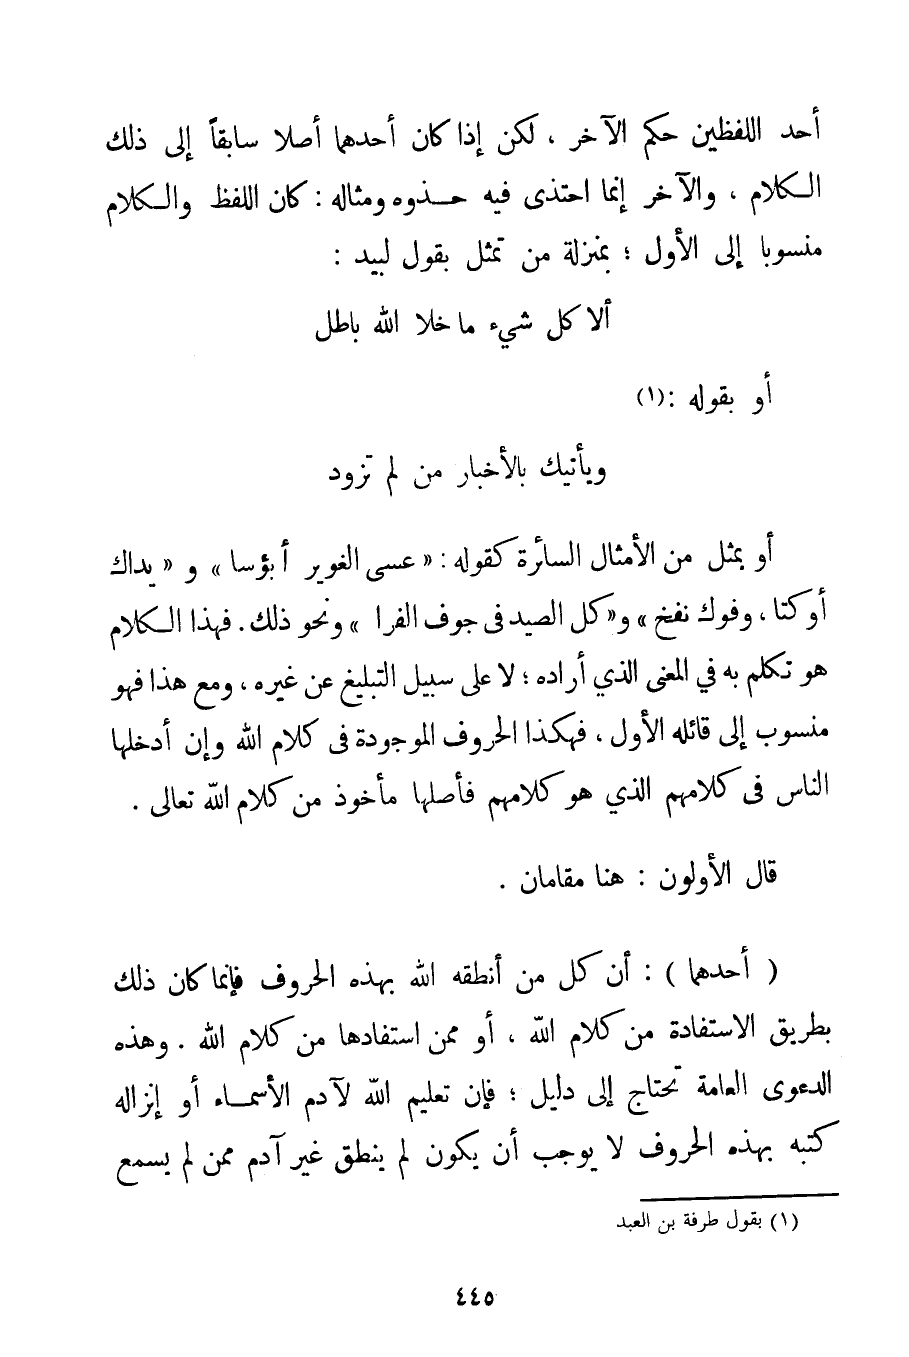 أحد اللفظين حكم الآخر ، لكن إذا كان أحدهما أصلا سابقاً إلى ذلك
الكلام ، والآخر إنما احتذى فيه حذوه ومثاله : كان اللفظ والكلام
منسوبا إلى الأول ؛ بمنزلة من تمثل بقول لبيد :
ألا كل شيء ما خلا الله باطل
أو بقوله :(١)
ويأتيك بالأخبار من لم تزود
أو بمثل من الأمثال السائرة كقوله : « عسى الغوير أبؤسا » و « يداك
أوكتا ، وفوك نفخ » و« كل الصيد في جوف الفرا » ونحو ذلك . فهذا الكلام
هو تكلم به في المعنى الذي أراده ؛ لا على سبيل التبليغ عن غيره ، ومع هذا فهو
منسوب إلى قائله الأول ، فهكذا الحروف الموجودة في كلام الله وإن أدخلها
الناس في كلامهم الذي هو كلامهم فأصلها مأخوذ من كلام الله تعالى .
قال الأولون : هنا مقامان .
( أحدهما ) : أن كل من أنطقه الله بهذه الحروف فإنما كان ذلك
بطريق الاستفادة من كلام الله ، أو ممن استفادها من كلام الله . وهذه
الدعوى العامة تحتاج إلى دليل ؛ فإن تعليم الله لآدم الأسماء أو إنزاله
كتبه بهذه الحروف لا يوجب أن يكون لم ينطق غير آدم ممن لم يسمع
(١) بقول طرفة بن العبد
٤٤٥